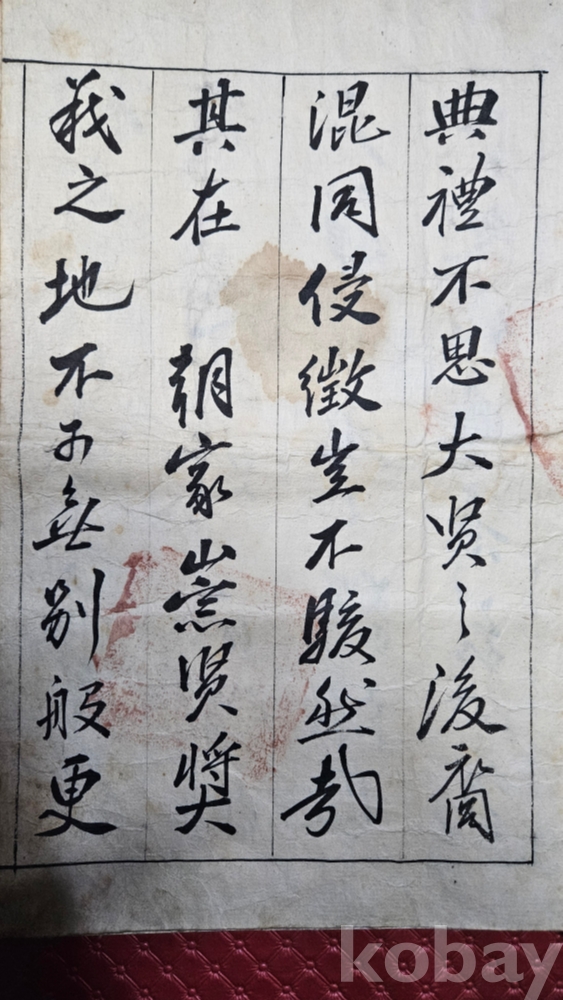 典禮不思大贤之後裔
混同侵徵豈不駭然哉
其在 朝家崇贤奬
義之地不可無別般更
kobay